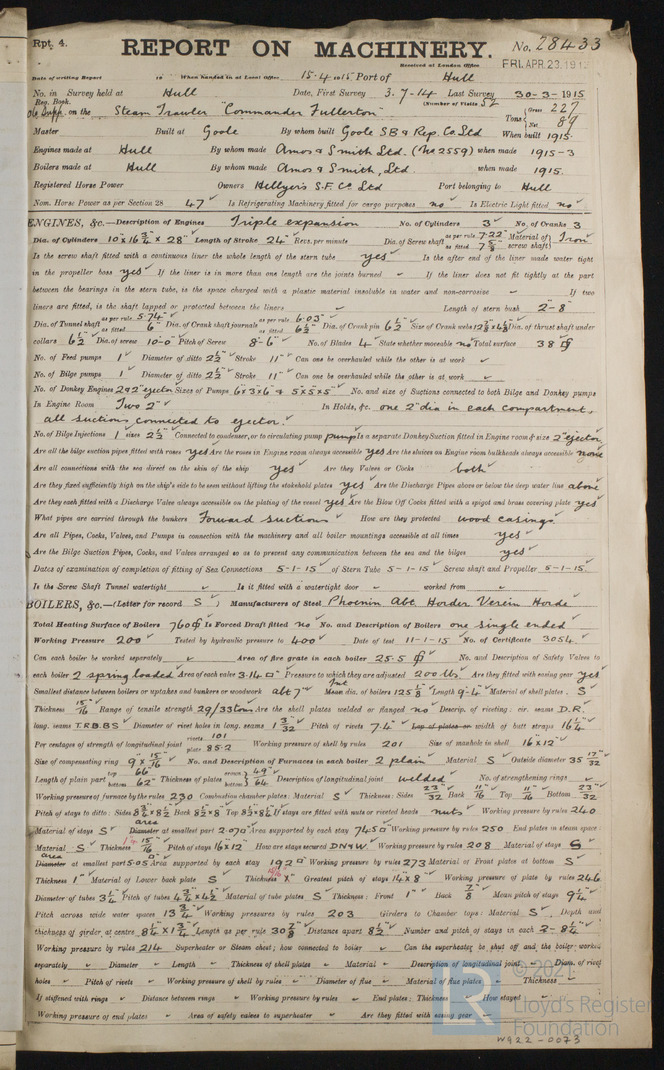 Rpt. 4.
REPORT ON MACHINERY.
No. 28433
Received at London Office FRI. APR. 23. 191
Date of writing Report 19 When handed in at Local Office 15.4.1915 Port of Hull
No. in Survey held at Hull Date, First Survey 3.7.14 Last Survey 30-3-1915
Reg. Book. (Number of Visits 52
on the Steam Trawler "Commander Fullerton" Tons Gross 227 Net 89
Master Built at Goole By whom built Goole S.B & Rep. Co. Ltd When built 1915
Engines made at Hull By whom made Amos & Smith Ltd. (No 2559) when made 1915-3
Boilers made at Hull By whom made Amos & Smith, Ltd. when made 1915.
Registered Horse Power Owners Hellyer's S.F. Co Ltd Port belonging to Hull
Nom. Horse Power as per Section 28 47 Is Refrigerating Machinery fitted for cargo purposes no Is Electric Light fitted no
ENGINES, &c.—Description of Engines Triple expansion No. of Cylinders 3 No. of Cranks 3
Dia. of Cylinders 10" x 16 3/4" x 28" Length of Stroke 24" Revs. per minute Dia. of Screw shaft as per rule 7.22" as fitted 7 5/8" Material of screw shaft Iron
Is the screw shaft fitted with a continuous liner the whole length of the stern tube yes Is the after end of the liner made water tight
in the propeller boss yes If the liner is in more than one length are the joints burned If the liner does not fit tightly at the part
between the bearings in the stern tube, is the space charged with a plastic material insoluble in water and non-corrosive If two
liners are fitted, is the shaft lapped or protected between the liners Length of stern bush 2'-8"
Dia. of Tunnel shaft as per rule 5.74" as fitted 6" Dia. of Crank shaft journals as per rule 6.03" as fitted 6 1/2" Dia. of Crank pin 6 1/2" Size of Crank webs Dia. of thrust shaft under
collars 6 1/2" Dia. of screw 10-0" Pitch of Screw 8'-6" No. of Blades 4 State whether moveable no Total surface 38
No. of Feed pumps 1 Diameter of ditto 2 1/2" Stroke 11" Can one be overhauled while the other is at work
No. of Bilge pumps 1 Diameter of ditto 2 1/2" Stroke 11" Can one be overhauled while the other is at work
No. of Donkey Engines 2 & 2" ejector Sizes of Pumps 6"x3"x6" & 5"x5"x5" No. and size of Suctions connected to both Bilge and Donkey pumps
In Engine Room Two 2" In Holds, &c. one 2" dia in each compartment,
all suctions connected to ejector.
No. of Bilge Injections 1 sizes 2 1/2" Connected to condenser, or to circulating pump pump Is a separate Donkey Suction fitted in Engine room & size 2" ejector
Are all the bilge suction pipes fitted with roses yes Are the roses in Engine room always accessible yes Are the sluices on Engine room bulkheads always accessible none
Are all connections with the sea direct on the skin of the ship yes Are they Valves or Cocks both
Are they fixed sufficiently high on the ship's side to be seen without lifting the stokehold plates yes Are the Discharge Pipes above or below the deep water line above
Are they each fitted with a Discharge Valve always accessible on the plating of the vessel yes Are the Blow Off Cocks fitted with a spigot and brass covering plate yes
What pipes are carried through the bunkers Forward suctions How are they protected wood casings
Are all Pipes, Cocks, Valves, and Pumps in connection with the machinery and all boiler mountings accessible at all times yes
Are the Bilge Suction Pipes, Cocks, and Valves arranged so as to prevent any communication between the sea and the bilges yes
Dates of examination of completion of fitting of Sea Connections 5-1-15 of Stern Tube 5-1-15 Screw shaft and Propeller 5-1-15
Is the Screw Shaft Tunnel watertight Is it fitted with a watertight door worked from
BOILERS, &c.—(Letter for record S) Manufacturers of Steel Phoenix Abt. Horder Verein Horde
Total Heating Surface of Boilers 760 Is Forced Draft fitted no No. and Description of Boilers one single ended
Working Pressure 200 Tested by hydraulic pressure to 400 Date of test 11-1-15 No. of Certificate 3054
Can each boiler be worked separately Area of fire grate in each boiler 25.5 No. and Description of Safety Valves to
each boiler 2 spring loaded Area of each valve 3.14 Pressure to which they are adjusted 200 lbs Are they fitted with easing gear yes
Smallest distance between boilers or uptakes and bunkers or woodwork abt 7" Int Mean dia. of boilers 125 5/8" Length 9'-4" Material of shell plates S
Thickness 15/16" Range of tensile strength 29/33 tons Are the shell plates welded or flanged no Descrip. of riveting: cir. seams D.R.
long. seams T.R.D.B.S Diameter of rivet holes in long. seams 1 3/32" Pitch of rivets 7.4" Lap of plates or width of butt straps 16 1/4"
Per centages of strength of longitudinal joint rivets 101 plate 85.2 Working pressure of shell by rules 201 Size of manhole in shell 16" x 12"
Size of compensating ring 9" x 15/16" No. and Description of Furnaces in each boiler 2 plain Material S Outside diameter 35 17/32"
Length of plain part top 66" bottom 62" Thickness of plates crown bottom 49/64" Description of longitudinal joint welded No. of strengthening rings
Working pressure of furnace by the rules 230 Combustion chamber plates: Material S Thickness: Sides 23/32" Back 11/16" Top 11/16" Bottom 23/32"
Pitch of stays to ditto: Sides 8 3/4" x 8 1/2" Back 8 1/2" x 8" Top 8 1/2" x 8 1/4" If stays are fitted with nuts or riveted heads nuts Working pressure by rules 240
Material of stays S area Diameter at smallest part 2.07 Area supported by each stay 74.5 Working pressure by rules 250 End plates in steam space:
Material S Thickness 15/16" Pitch of stays 16" x 12" How are stays secured D.N & W. Working pressure by rules 208 Material of stays S
area Diameter at smallest part 5.05 Area supported by each stay 192 Working pressure by rules 273 Material of Front plates at bottom S
Thickness 1" Material of Lower back plate S Thickness Greatest pitch of stays 14" x 8" Working pressure of plate by rules 246
Diameter of tubes 3 1/4" Pitch of tubes 4 3/4" x 4 1/2" Material of tube plates S Thickness: Front 1" Back 7/8" Mean pitch of stays 9 1/4"
Pitch across wide water spaces 13 3/4" Working pressures by rules 203 Girders to Chamber tops: Material S Depth and
thickness of girder at centre 8 1/4" x 1 3/4" Length as per rule 30 7/8" Distance apart 8 1/2" Number and pitch of stays in each 2-8 1/4"
Working pressure by rules 214 Superheater or Steam chest; how connected to boiler Can the superheater be shut off and the boiler worked
separately Diameter Length Thickness of shell plates Material Description of longitudinal joint Diam. of rivet
holes Pitch of rivets Working pressure of shell by rules Diameter of flue Material of flue plates Thickness
If stiffened with rings Distance between rings Working pressure by rules End plates: Thickness How stayed
Working pressure of end plates Area of safety valves to superheater Are they fitted with easing gear
© 2021
Lloyd's Register
Foundation
W922-0073